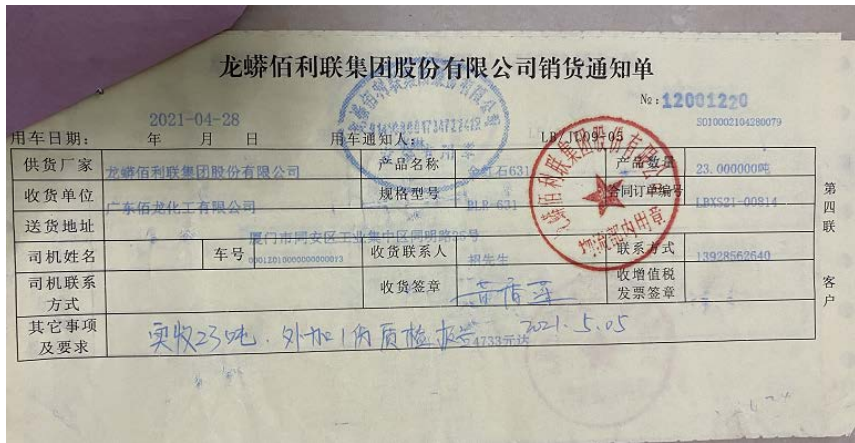 龙蟒佰利联集团股份有限公司销货通知单
№:12001220
2021-04-28
SOI0002104280079
用车日期: 年 月 日 用车通知人: LB/JL09-05
供货厂家 龙蟒佰利联集团股份有限公司 产品名称 金红石631 产品数量 23.000000吨
收货单位 广东佰龙化工有限公司 规格型号 BLR-631 合同订单编号 LBXS21-00814
送货地址 厦门市同安区工业集中区同明路35号
司机姓名 车号 收货联系人 胡先生 联系方式 13928562640
司机联系方式 收货签章 收增值税发票签章
其它事项及要求 实收23吨.外加1份质检报告 2021.5.05
4733元达
第四联 客户
物流部内用章